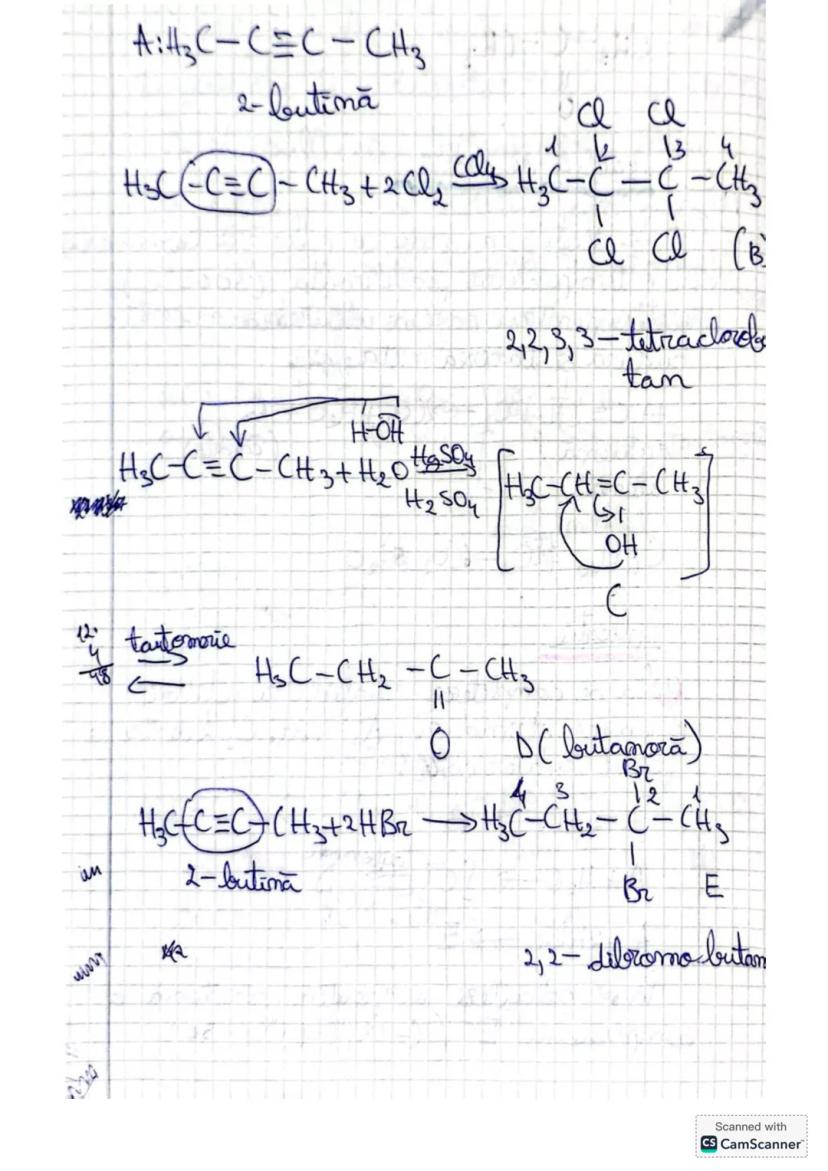 A: H₃C – C ≡ C – CH₃
2-butină
Cl Cl
1 2 3 4
H₃C – C ≡ C – CH₃ + 2Cl₂ CCl₄ → H₃C – C – C – CH₃
Cl Cl (B
2,2,3,3 – tetraclorobu
tan
H-OH
H₃C – C ≡ C – CH₃ + H₂O HgSO₄ H₂SO₄ [H₃C – CH = C – CH₃]
OH
C
12·
4
48
tautomerie
H₃C – CH₂ – C – CH₃
O D (butanonă)
Br
4 3 2 1
H₃C – C ≡ C – CH₃ + 2HBr → H₃C – CH₂ – C – CH₃
2-butină Br E
2,2 – dibromo butan
Scanned with
CS CamScanner